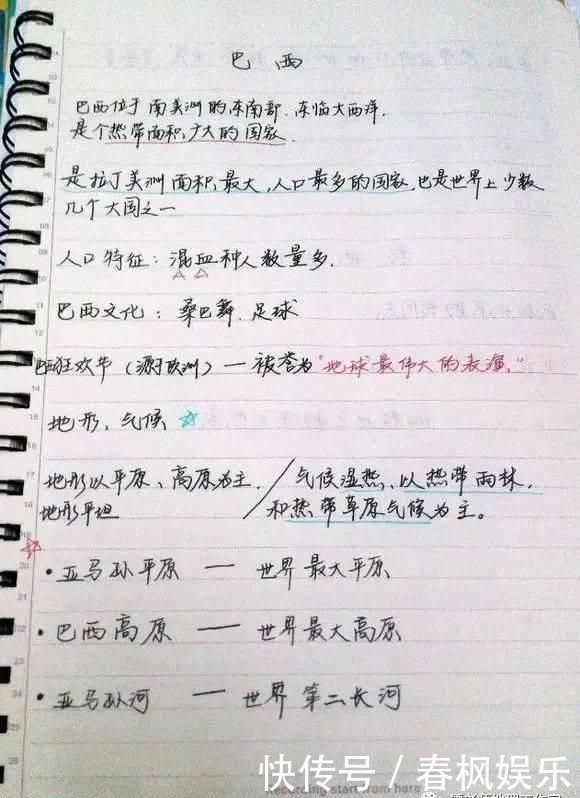 巴西
巴西位于南美洲的东南部,东临大西洋.
是个热带面积广大的国家.
是拉丁美洲面积最大,人口最多的国家,也是世界上少数
几个大国之一
人口特征:混血种人数量多.
巴西文化:桑巴舞.足球
巴西狂欢节(源于欧洲)—被誉为"地球最伟大的表演."
地形,气候
地形以平原、高原为主. / 气候湿热,以热带雨林.
地形平坦 和热带草原气候为主。
·亚马孙平原 — 世界最大平原
·巴西高原 — 世界最大高原
·亚马孙河 — 世界第二长河
快传号 / 春枫娱乐
Recording start from here